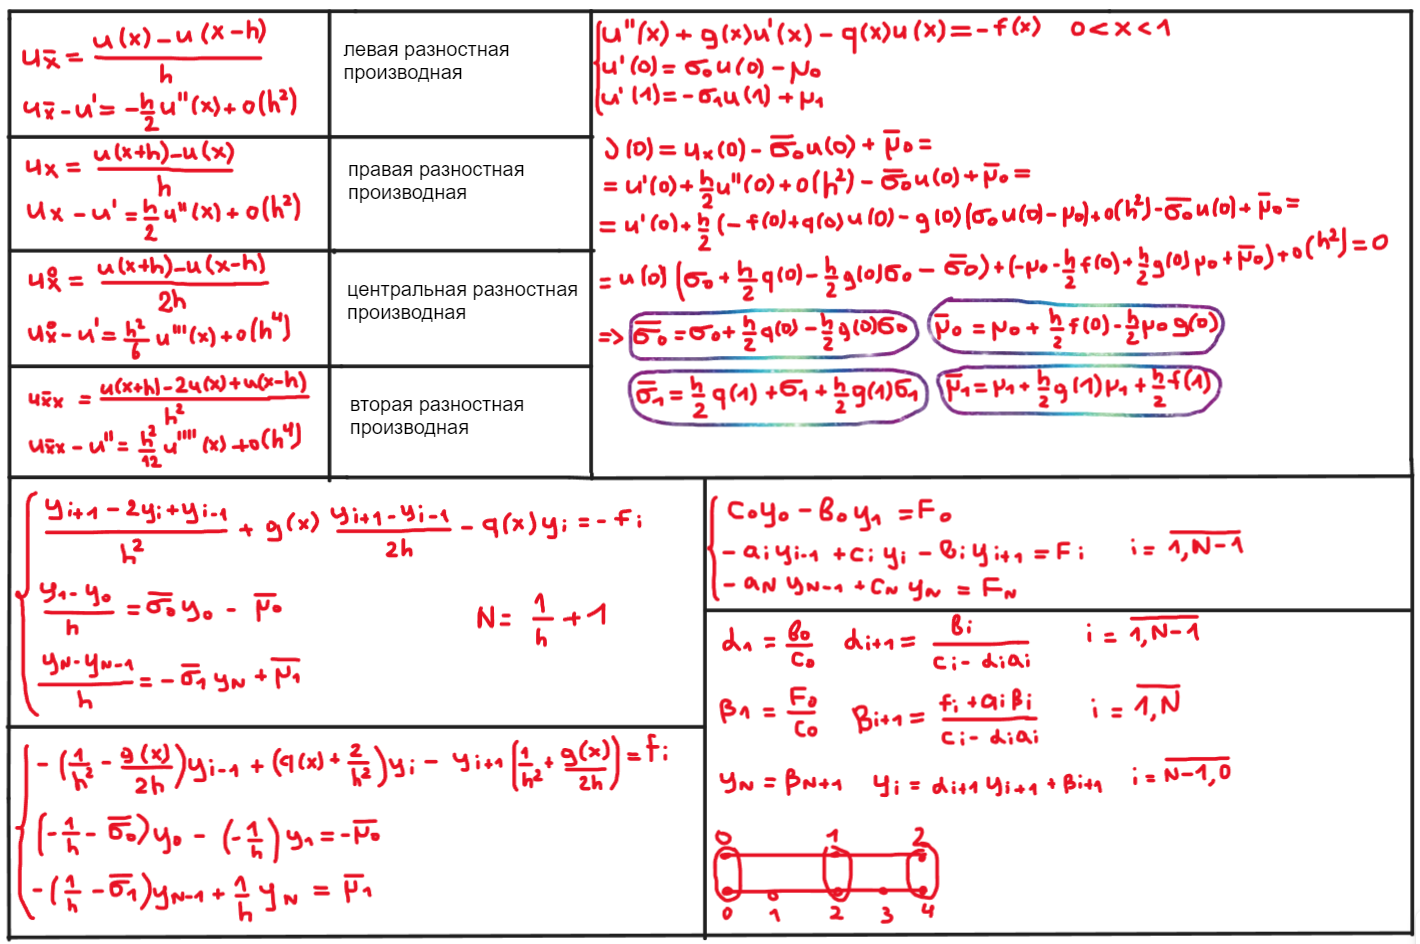 u_x̄ = (u(x) − u(x−h))/h
u_x̄ − u' = −h/2 u''(x) + o(h²)
левая разностная
производная
u_x = (u(x+h) − u(x))/h
u_x − u' = h/2 u''(x) + o(h²)
правая разностная
производная
u_x̊ = (u(x+h) − u(x−h))/2h
u_x̊ − u' = h²/6 u'''(x) + o(h⁴)
центральная разностная
производная
u_x̄x = (u(x+h) − 2u(x) + u(x−h))/h²
u_x̄x − u'' = h²/12 u''''(x) + o(h⁴)
вторая разностная
производная
u''(x) + g(x)u'(x) − q(x)u(x) = −f(x) 0<x<1
u'(0) = σ₀u(0) − μ₀
u'(1) = −σ₁u(1) + μ₁
(0) = u_x(0) − σ̄₀u(0) + μ̄₀ =
= u'(0) + h/2 u''(0) + o(h²) − σ̄₀u(0) + μ̄₀ =
= u'(0) + h/2 (−f(0) + q(0)u(0) − g(0)(σ₀u(0) − μ₀) + o(h²) − σ̄₀u(0) + μ̄₀ =
= u(0)(σ₀ + h/2 q(0) − h/2 g(0)σ₀ − σ̄₀) + (−μ₀ − h/2 f(0) + h/2 g(0)μ₀ + μ̄₀) + o(h²) = 0
=> σ̄₀ = σ₀ + h/2 q(0) − h/2 g(0)σ₀ μ̄₀ = μ₀ + h/2 f(0) − h/2 μ₀ g(0)
σ̄₁ = h/2 q(1) + σ₁ + h/2 g(1)σ₁ μ̄₁ = μ₁ + h/2 g(1)μ₁ + h/2 f(1)
(y_{i+1} − 2y_i + y_{i−1})/h² + g(x) (y_{i+1} − y_{i−1})/2h − q(x)y_i = −f_i
(y₁ − y₀)/h = σ̄₀y₀ − μ̄₀ N = 1/h + 1
(y_N − y_{N−1})/h = −σ̄₁y_N + μ̄₁
−(1/h² − g(x)/2h)y_{i−1} + (q(x) + 2/h²)y_i − y_{i+1}(1/h² + g(x)/2h) = f_i
(−1/h − σ̄₀)y₀ − (−1/h)y₁ = −μ̄₀
−(1/h − σ̄₁)y_{N−1} + 1/h y_N = μ̄₁
c₀y₀ − в₀y₁ = F₀
−a_i y_{i−1} + c_i y_i − в_i y_{i+1} = F_i i = 1,N−1
−a_N y_{N−1} + c_N y_N = F_N
α₁ = в₀/c₀ α_{i+1} = в_i/(c_i − α_i a_i) i = 1,N−1
β₁ = F₀/c₀ β_{i+1} = (f_i + a_i β_i)/(c_i − α_i a_i) i = 1,N
y_N = β_{N+1} y_i = α_{i+1} y_{i+1} + β_{i+1} i = N−1,0
0 1 2
0 1 2 3 4